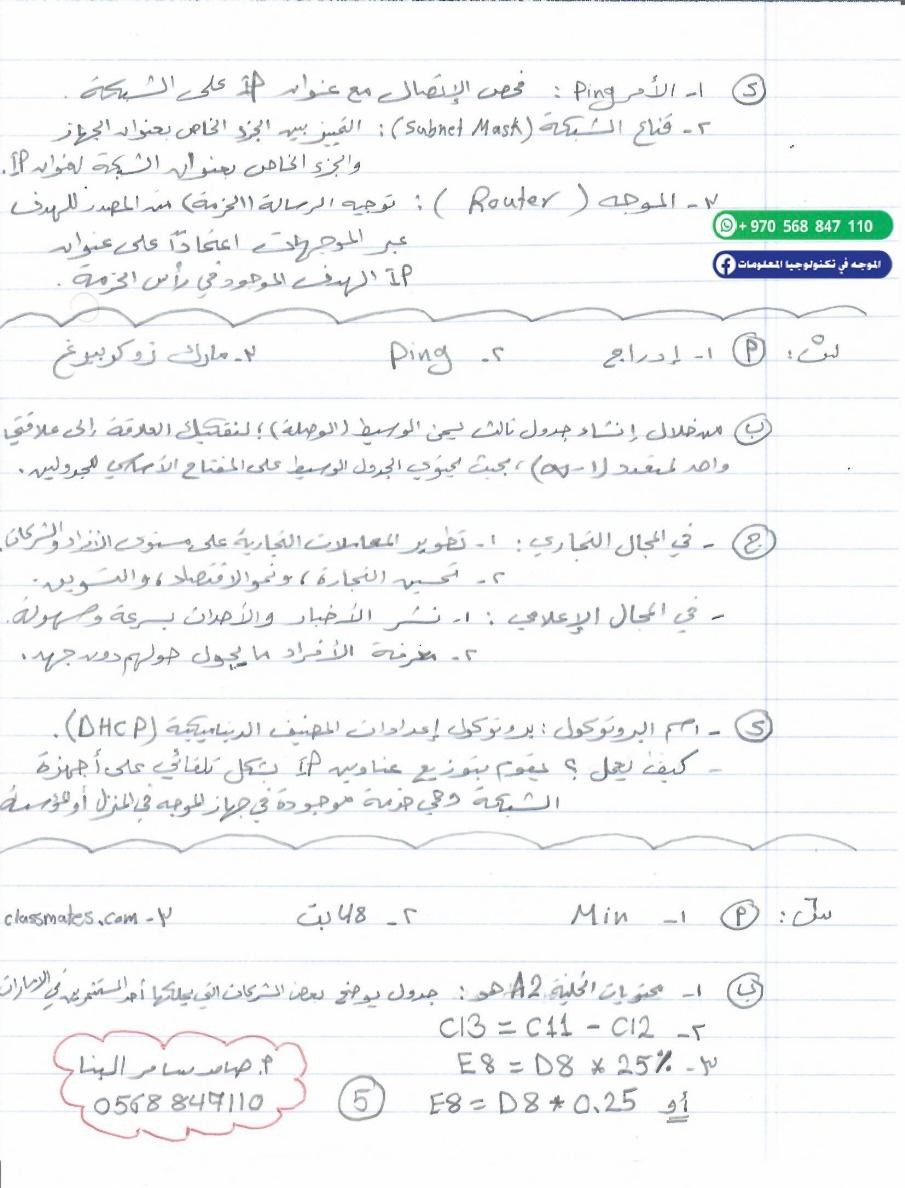 د ١- الأمر Ping : فحص الإتصال مع عنوان IP على الشبكة .
٢- قناع الشبكة (Subnet Mask) : التمييز بين الجزء الخاص بعنوان الجهاز
والجزء الخاص بعنوان الشبكة لعنوان IP.
٣- الموجه ( Router ) : توجيه الرسالة (الحزمة) من المصدر للهدف
عبر الموجهات اعتمادًا على عنوان
IP الهدف الموجود في رأس الحزمة .
+ 970 568 847 110
الموجه في تكنولوجيا المعلومات
أ ١- إدراج ٢- Ping ٣- مارك زوكوبيرغ
ب من خلال إنشاء جدول ثالث يسمى الوسيط (الوصلة) ؛ لتفكيك العلاقة إلى علاقتي
واحد لمتعدد (١-∞) ، بحيث يحتوي الجدول الوسيط على المفتاح الأساسي للجدولين .
ج - في المجال التجاري : ١- تطوير المعاملات التجارية على مستوى الأفراد والشركات .
٢- تحسين التجارة ، ونمو الاقتصاد ، والتسويق .
- في المجال الإعلامي : ١- نشر الأخبار والأحداث بسرعة وسهولة .
٢- معرفة الأفراد ما يجول حولهم دون جهد .
د - اسم البروتوكول : بروتوكول إعدادات المضيف الديناميكية (DHCP) .
- كيف يعمل ؟ يقوم بتوزيع عناوين IP بشكل تلقائي على أجهزة
الشبكة وهي خدمة موجودة في جهاز الموجه في المنزل أو المؤسسة
أ ١- Min ٢- 48 بت ٣- classmates.com
ب ١- محتويات الخلية A2 هو : جدول يوضح بعض الشركات التي يملكها أحد المستثمرين في الامارات
٢- C13 = C11 - C12
٣- E8 = D8 * 25%
أو E8 = D8 * 0.25
م. صامد سامر البنا
0568847110
5